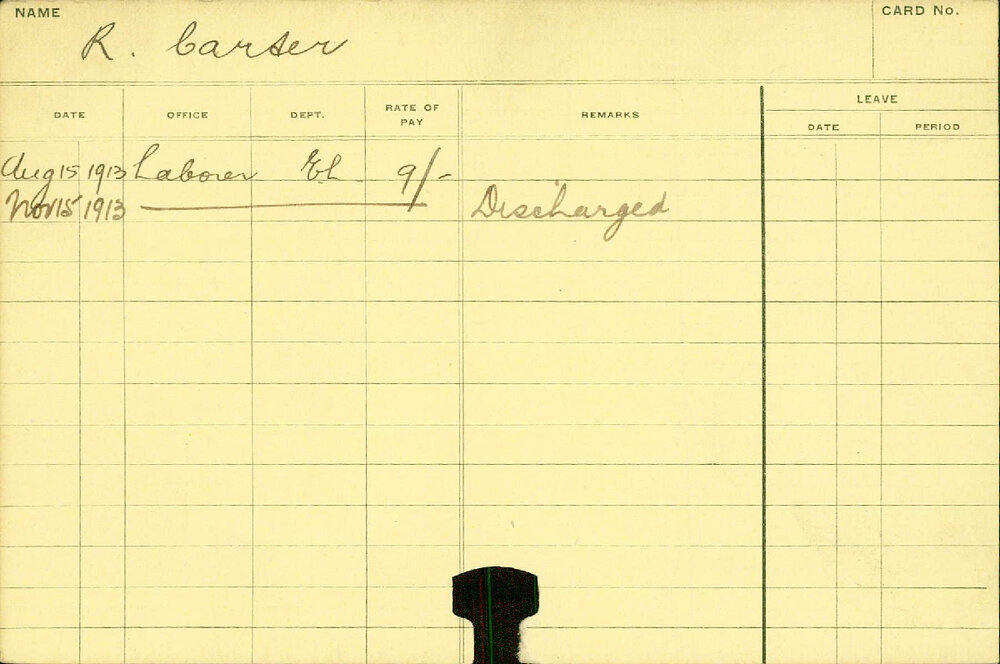 NAME
CARD No.
R. Carter
DATE OFFICE DEPT. RATE OF PAY REMARKS LEAVE
DATE PERIOD
Aug 15 1913 Laborer El 9/-
Nov 15 1913 Discharged